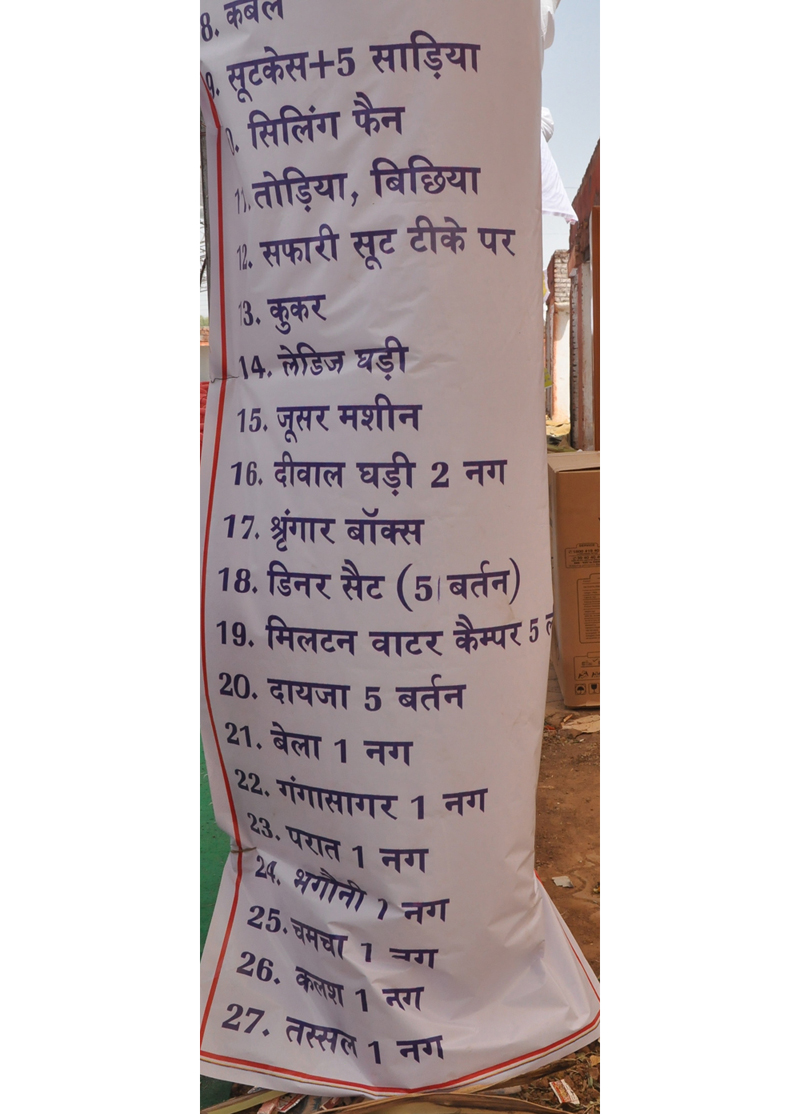 8. कंबल
9. सूटकेस+5 साड़िया
0. सिलिंग फैन
11. तोड़िया, बिछिया
12. सफारी सूट टीके पर
13. कुकर
14. लेडिज घड़ी
15. जूसर मशीन
16. दीवाल घड़ी 2 नग
17. श्रृंगार बॉक्स
18. डिनर सैट (51 बर्तन)
19. मिलटन वाटर कैम्पर 5
20. दायजा 5 बर्तन
21. बेला 1 नग
22. गंगासागर 1 नग
23. परात 1 नग
24. भगौनी 1 नग
25. चमचा 1 नग
26. कलश 1 नग
27. तस्सल 1 नग